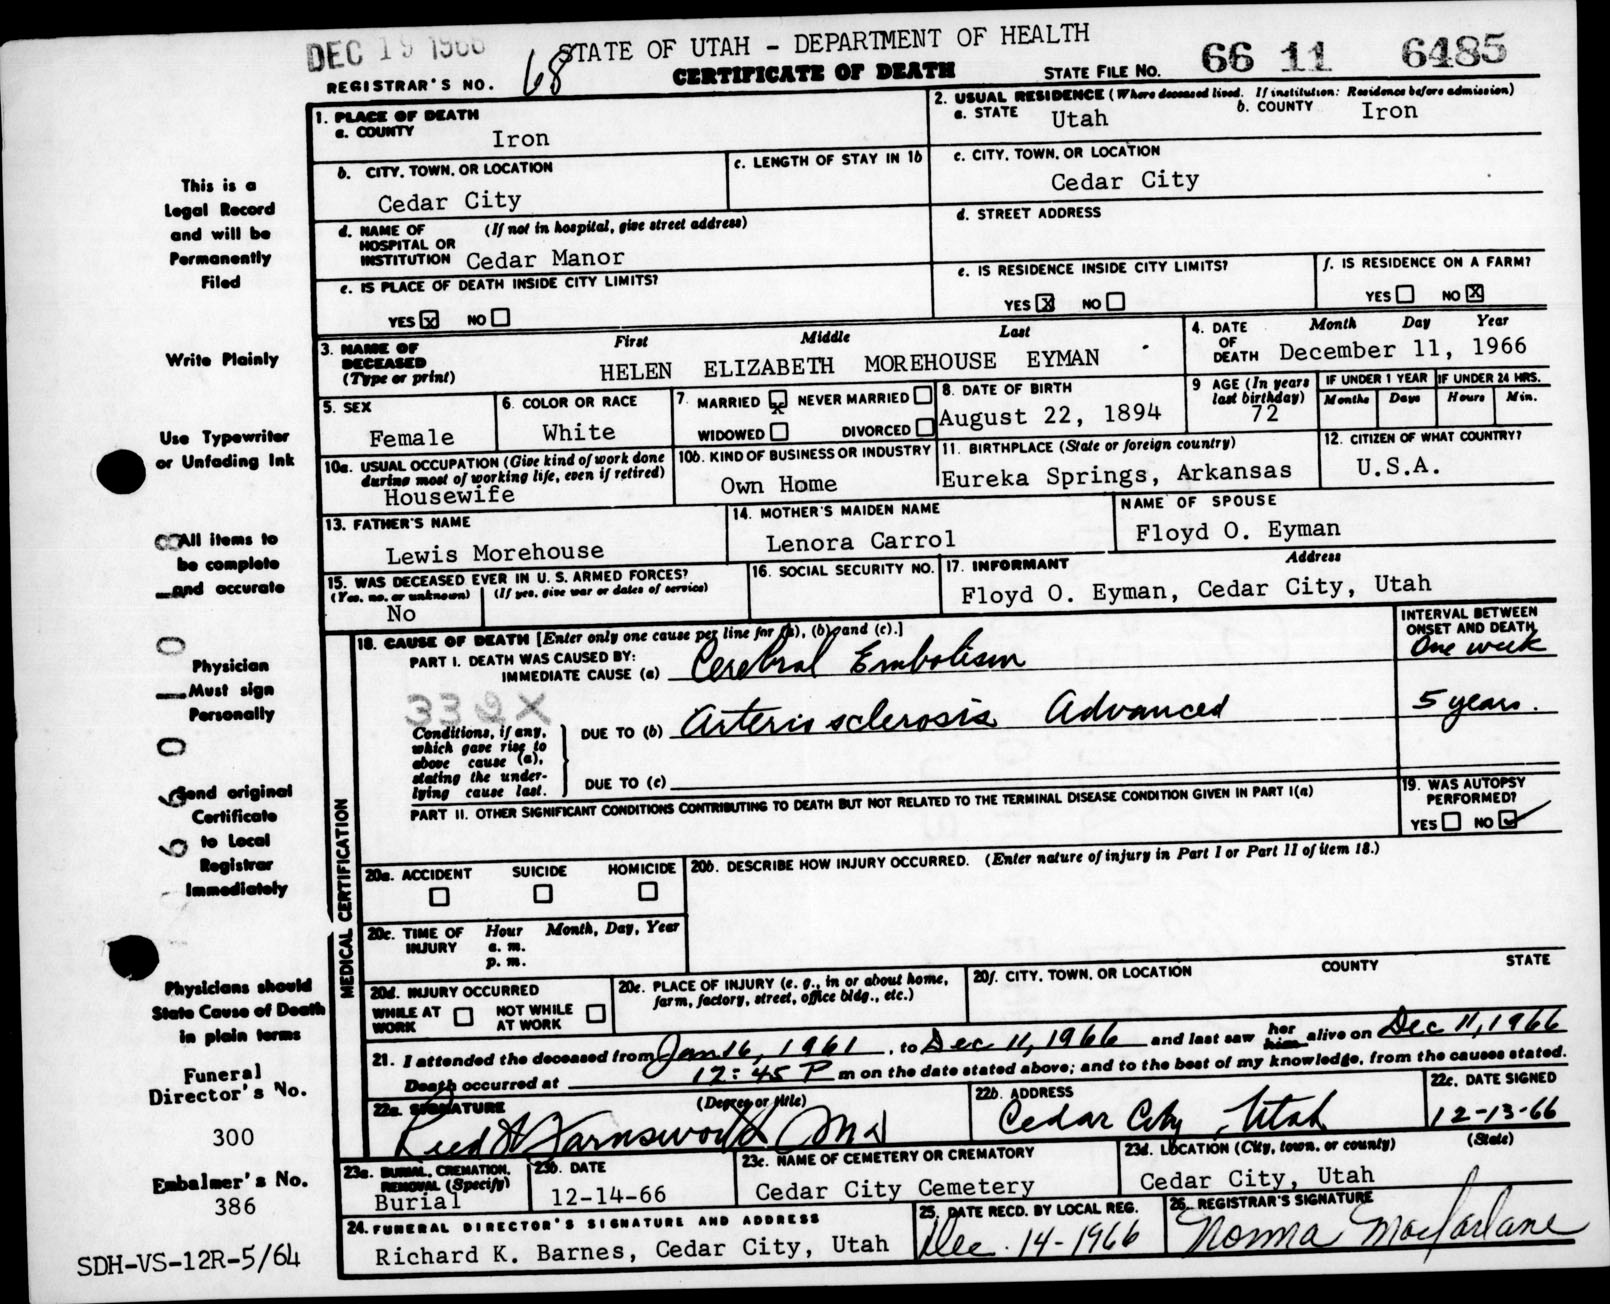 DEC 19 1966
STATE OF UTAH - DEPARTMENT OF HEALTH
REGISTRAR'S NO. 68
CERTIFICATE OF DEATH
STATE FILE NO. 66 11 6485
This is a
Legal Record
and will be
Permanently
Filed
Write Plainly
Use Typewriter
or Unfading Ink
All items to
be complete
and accurate
Physician
Must sign
Personally
Send original
Certificate
to Local
Registrar
Immediately
Physicians should
State Cause of Death
in plain terms
Funeral
Director's No.
300
Embalmer's No.
386
SDH-VS-12R-5/64
1. PLACE OF DEATH
a. COUNTY Iron
2. USUAL RESIDENCE (Where deceased lived. If institution: Residence before admission)
a. STATE Utah b. COUNTY Iron
b. CITY, TOWN, OR LOCATION
Cedar City
c. LENGTH OF STAY IN 1b
c. CITY, TOWN, OR LOCATION
Cedar City
d. NAME OF (If not in hospital, give street address)
HOSPITAL OR
INSTITUTION Cedar Manor
d. STREET ADDRESS
e. IS PLACE OF DEATH INSIDE CITY LIMITS?
YES X NO
e. IS RESIDENCE INSIDE CITY LIMITS?
YES X NO
f. IS RESIDENCE ON A FARM?
YES NO X
3. NAME OF
DECEASED
(Type or print)
First Middle Last
HELEN ELIZABETH MOREHOUSE EYMAN
4. DATE
OF
DEATH
Month Day Year
December 11, 1966
5. SEX
Female
6. COLOR OR RACE
White
7. MARRIED X NEVER MARRIED
WIDOWED DIVORCED
8. DATE OF BIRTH
August 22, 1894
9 AGE (In years
last birthday)
72
IF UNDER 1 YEAR
Months Days
IF UNDER 24 HRS.
Hours Min.
10a. USUAL OCCUPATION (Give kind of work done
during most of working life, even if retired)
Housewife
10b. KIND OF BUSINESS OR INDUSTRY
Own Home
11. BIRTHPLACE (State or foreign country)
Eureka Springs, Arkansas
12. CITIZEN OF WHAT COUNTRY?
U.S.A.
13. FATHER'S NAME
Lewis Morehouse
14. MOTHER'S MAIDEN NAME
Lenora Carrol
NAME OF SPOUSE
Floyd O. Eyman
15. WAS DECEASED EVER IN U. S. ARMED FORCES?
(Yes, no, or unknown) (If yes, give war or dates of service)
No
16. SOCIAL SECURITY NO.
17. INFORMANT Address
Floyd O. Eyman, Cedar City, Utah
MEDICAL CERTIFICATION
18. CAUSE OF DEATH [Enter only one cause per line for (a), (b) and (c).]
PART I. DEATH WAS CAUSED BY:
IMMEDIATE CAUSE (a) Cerebral Embolism
INTERVAL BETWEEN
ONSET AND DEATH
One week
332X
Conditions, if any,
which gave rise to
above cause (a),
stating the under-
lying cause last.
DUE TO (b) Arterio sclerosis Advanced
5 years.
DUE TO (c)
PART II. OTHER SIGNIFICANT CONDITIONS CONTRIBUTING TO DEATH BUT NOT RELATED TO THE TERMINAL DISEASE CONDITION GIVEN IN PART I(a)
19. WAS AUTOPSY
PERFORMED?
YES NO
20a. ACCIDENT SUICIDE HOMICIDE
20b. DESCRIBE HOW INJURY OCCURRED. (Enter nature of injury in Part I or Part II of item 18.)
20c. TIME OF Hour Month, Day, Year
INJURY a. m.
p. m.
20d. INJURY OCCURRED
WHILE AT
WORK
NOT WHILE
AT WORK
20e. PLACE OF INJURY (e. g., in or about home,
farm, factory, street, office bldg., etc.)
20f. CITY, TOWN, OR LOCATION COUNTY STATE
21. I attended the deceased from Jan 16, 1961, to Dec 11, 1966 and last saw her him alive on Dec 11, 1966
Death occurred at 12:45 P m on the date stated above; and to the best of my knowledge, from the causes stated.
22a. SIGNATURE (Degree or title)
Reed W Farnsworth MD
22b. ADDRESS
Cedar City, Utah
22c. DATE SIGNED
12-13-66
23a. BURIAL, CREMATION,
REMOVAL (Specify)
Burial
23b. DATE
12-14-66
23c. NAME OF CEMETERY OR CREMATORY
Cedar City Cemetery
23d. LOCATION (City, town, or county) (State)
Cedar City, Utah
24. FUNERAL DIRECTOR'S SIGNATURE AND ADDRESS
Richard K. Barnes, Cedar City, Utah
25. DATE RECD. BY LOCAL REG.
Dec. 14-1966
26. REGISTRAR'S SIGNATURE
Norma Macfarlane